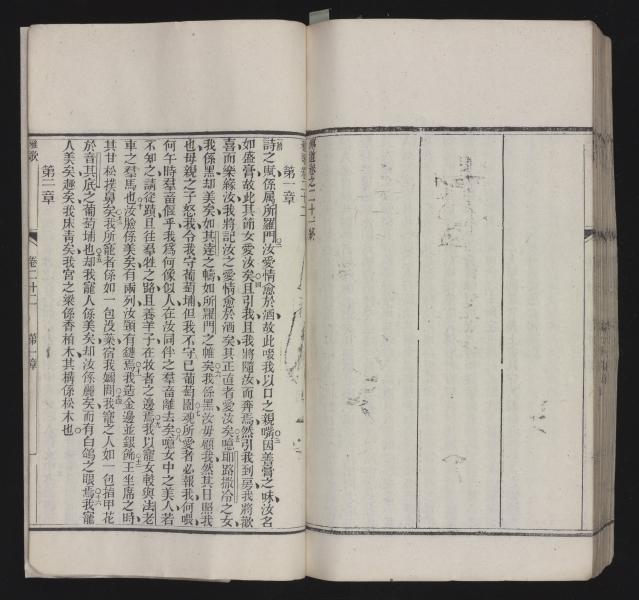 第一章
詩之賦係属所羅門汝愛情愈於酒故此啜我以口之親嘴因善膏之味汝名
如盛膏故此其節女愛汝矣且引我且我將隨汝而奔焉然引我到房我將歡
喜而樂緣汝我將記汝之愛情愈於酒矣其正直者愛汝矣噫耶路撒冷之女
我係黑却美矣如其達之幬如所羅門之帷矣我係黑汝毋顧我然其日照我
也毋親之子怒我令我守葡萄埔但我不守己葡萄園魂所愛者必報我何喂
何午時羣畜偃乎我為何像似人在汝同伴之羣畜離去矣噫女中之美人若
不知之請從蹟且往羣牲之路且養羊子在牧者之邊焉我以寵女較與法老
車之羣馬也汝臉係美矣有兩列汝頸有鏈焉我造金邊並銀飾王坐席之時
其甘松撲鼻矣我所寵者係如一包没藥宿我
於音其底之葡萄埔也却我寵人係美矣却汝係麗矣而有白鴿之眼焉我寵
人美矣趣矣我床青矣我宮之梁係香柏木其桷係松木也
第二章
雅歌
卷二十二
第一章